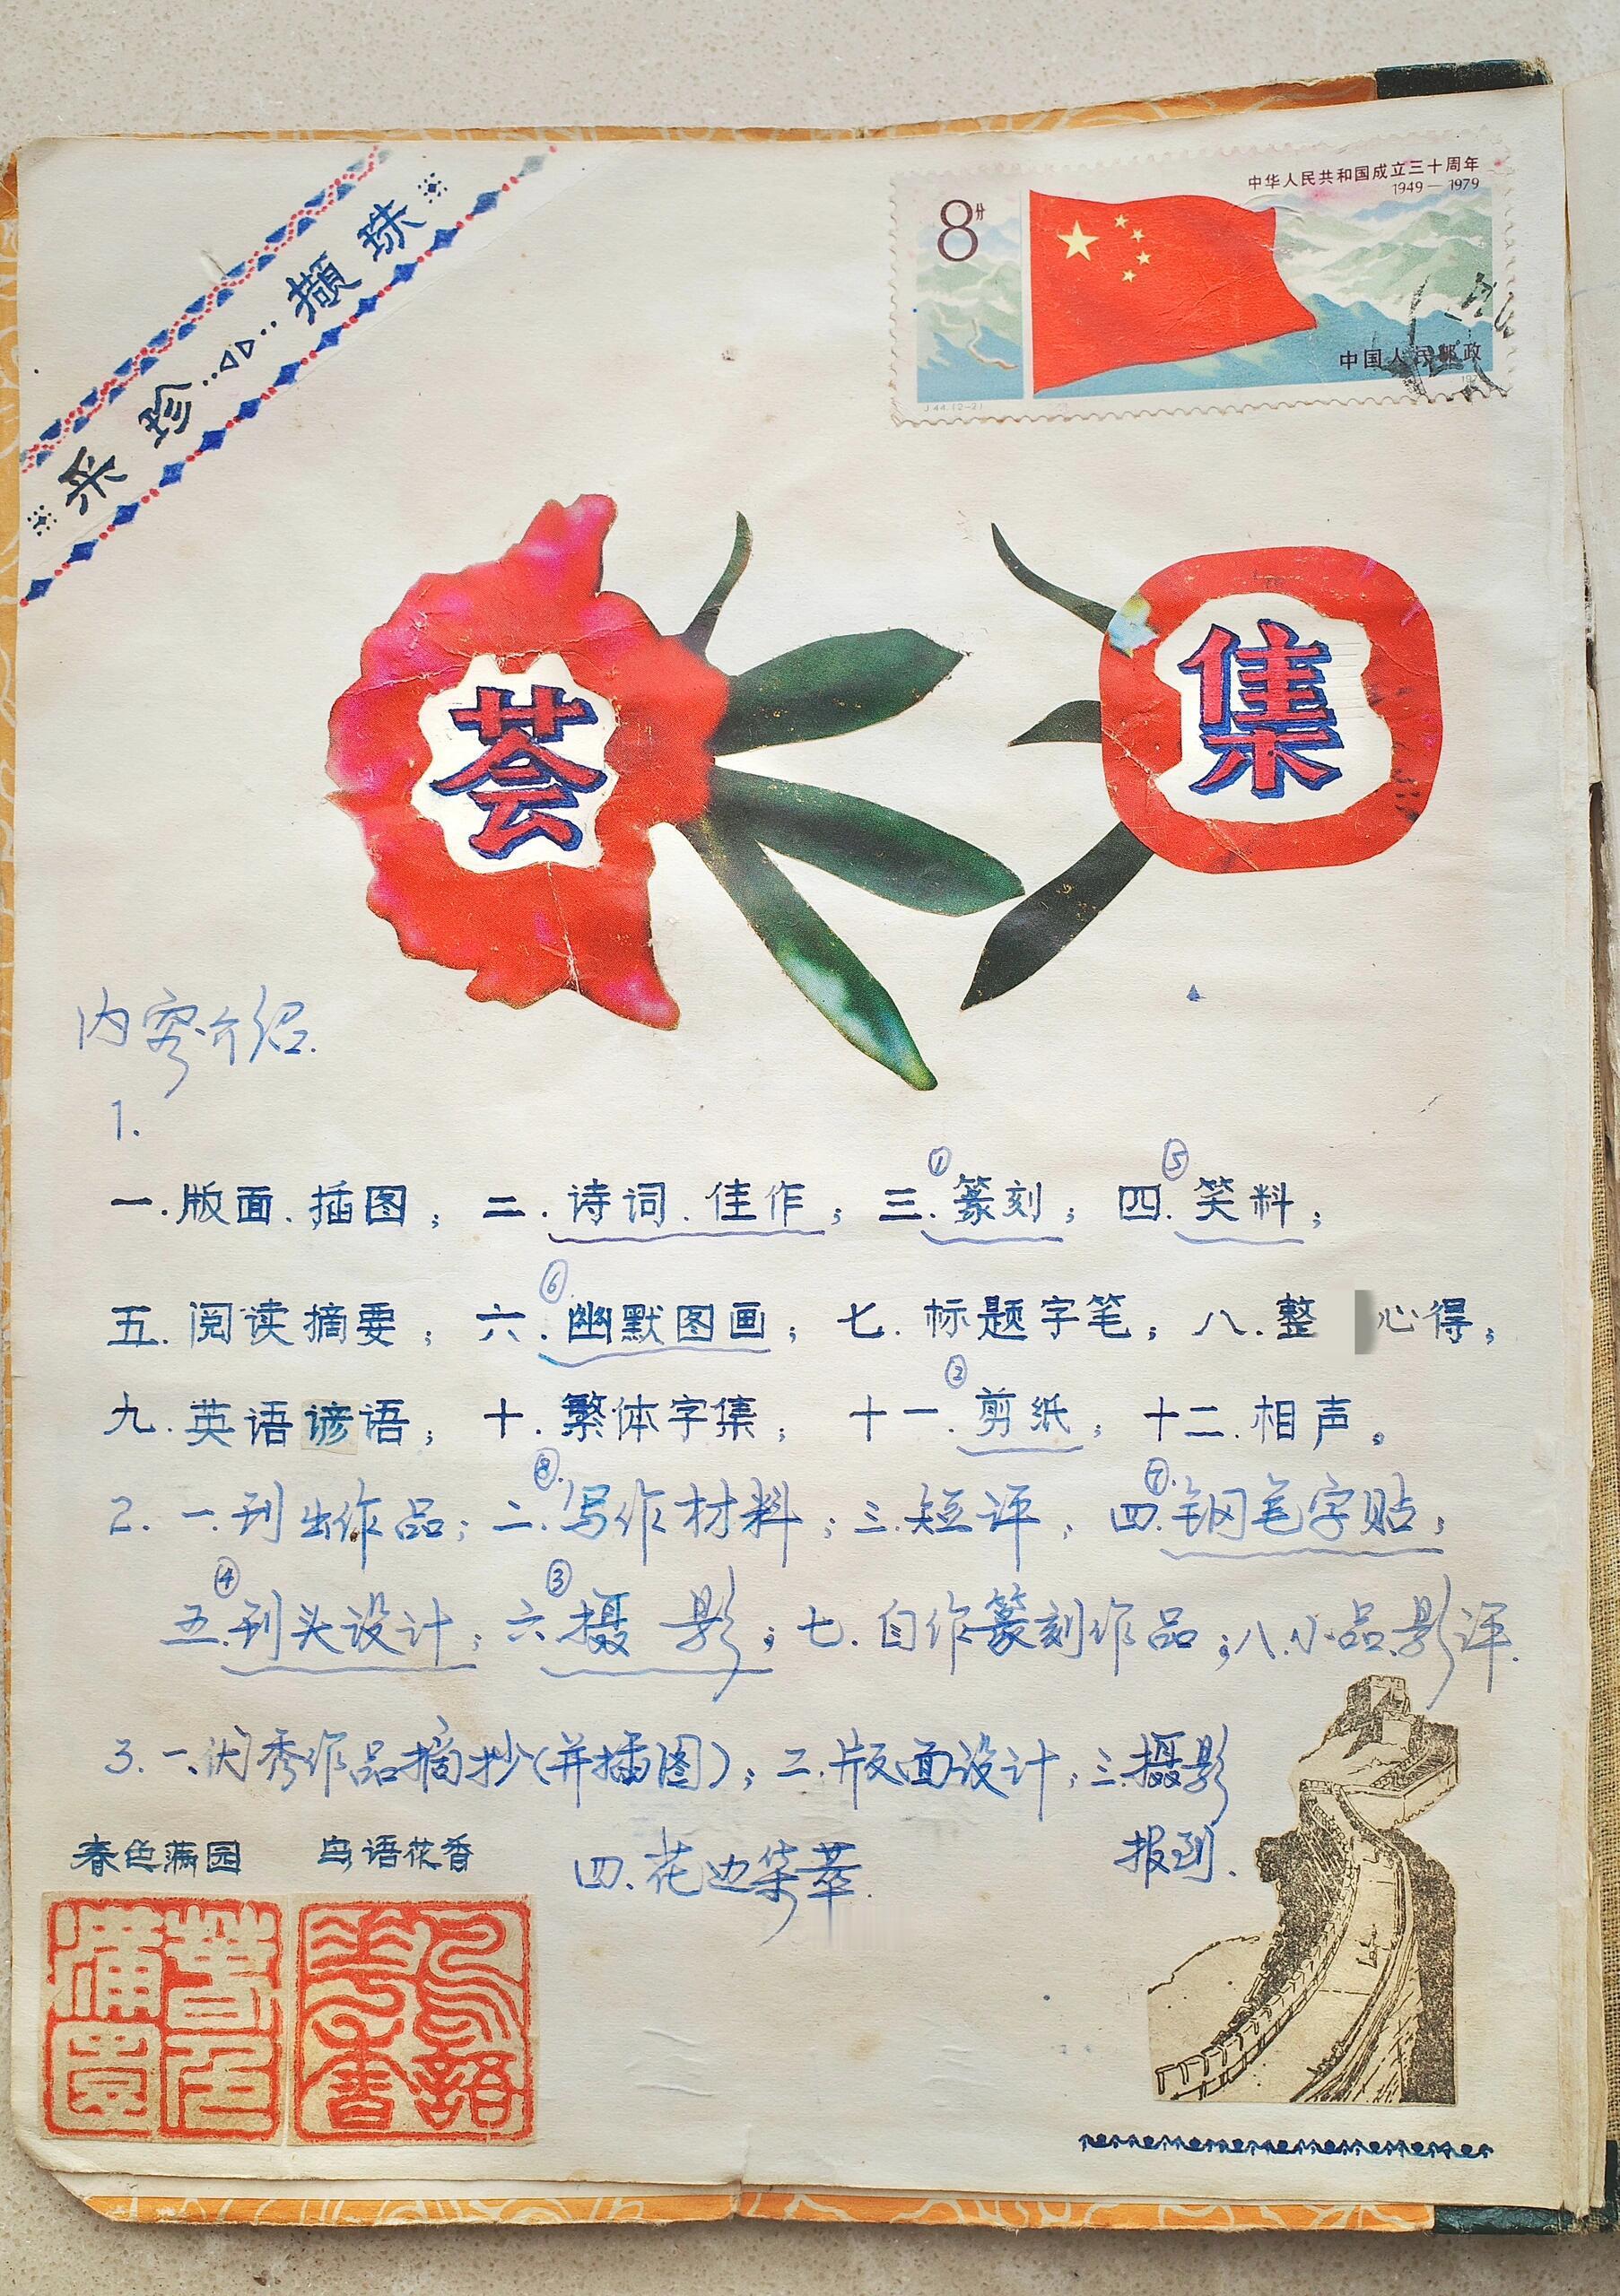 采珍……撷珠
中华人民共和国成立三十周年
1949—1979
8分
中国人民邮政
J44.(2-2)
荟集
内容介绍.
1.
一.版面.插图；二.诗词.佳作；三.①篆刻；四.⑤笑料；
五.阅读摘要；六.⑥幽默图画；七.标题字笔；八.整 心得；
九.英语谚语；十.繁体字集；十一.②剪纸；十二.相声。
2.一.刊出作品；二.⑧写作材料；三.短评；四.⑦钢笔字贴；
五.④刊头设计；六.③摄影；七.自作篆刻作品；八.小品影评.
3.一.优秀作品摘抄(并插图)；二.版面设计；三.摄影
报刊.
四.花边集萃.
春色满园 鸟语花香
春色满园
鸟语花香